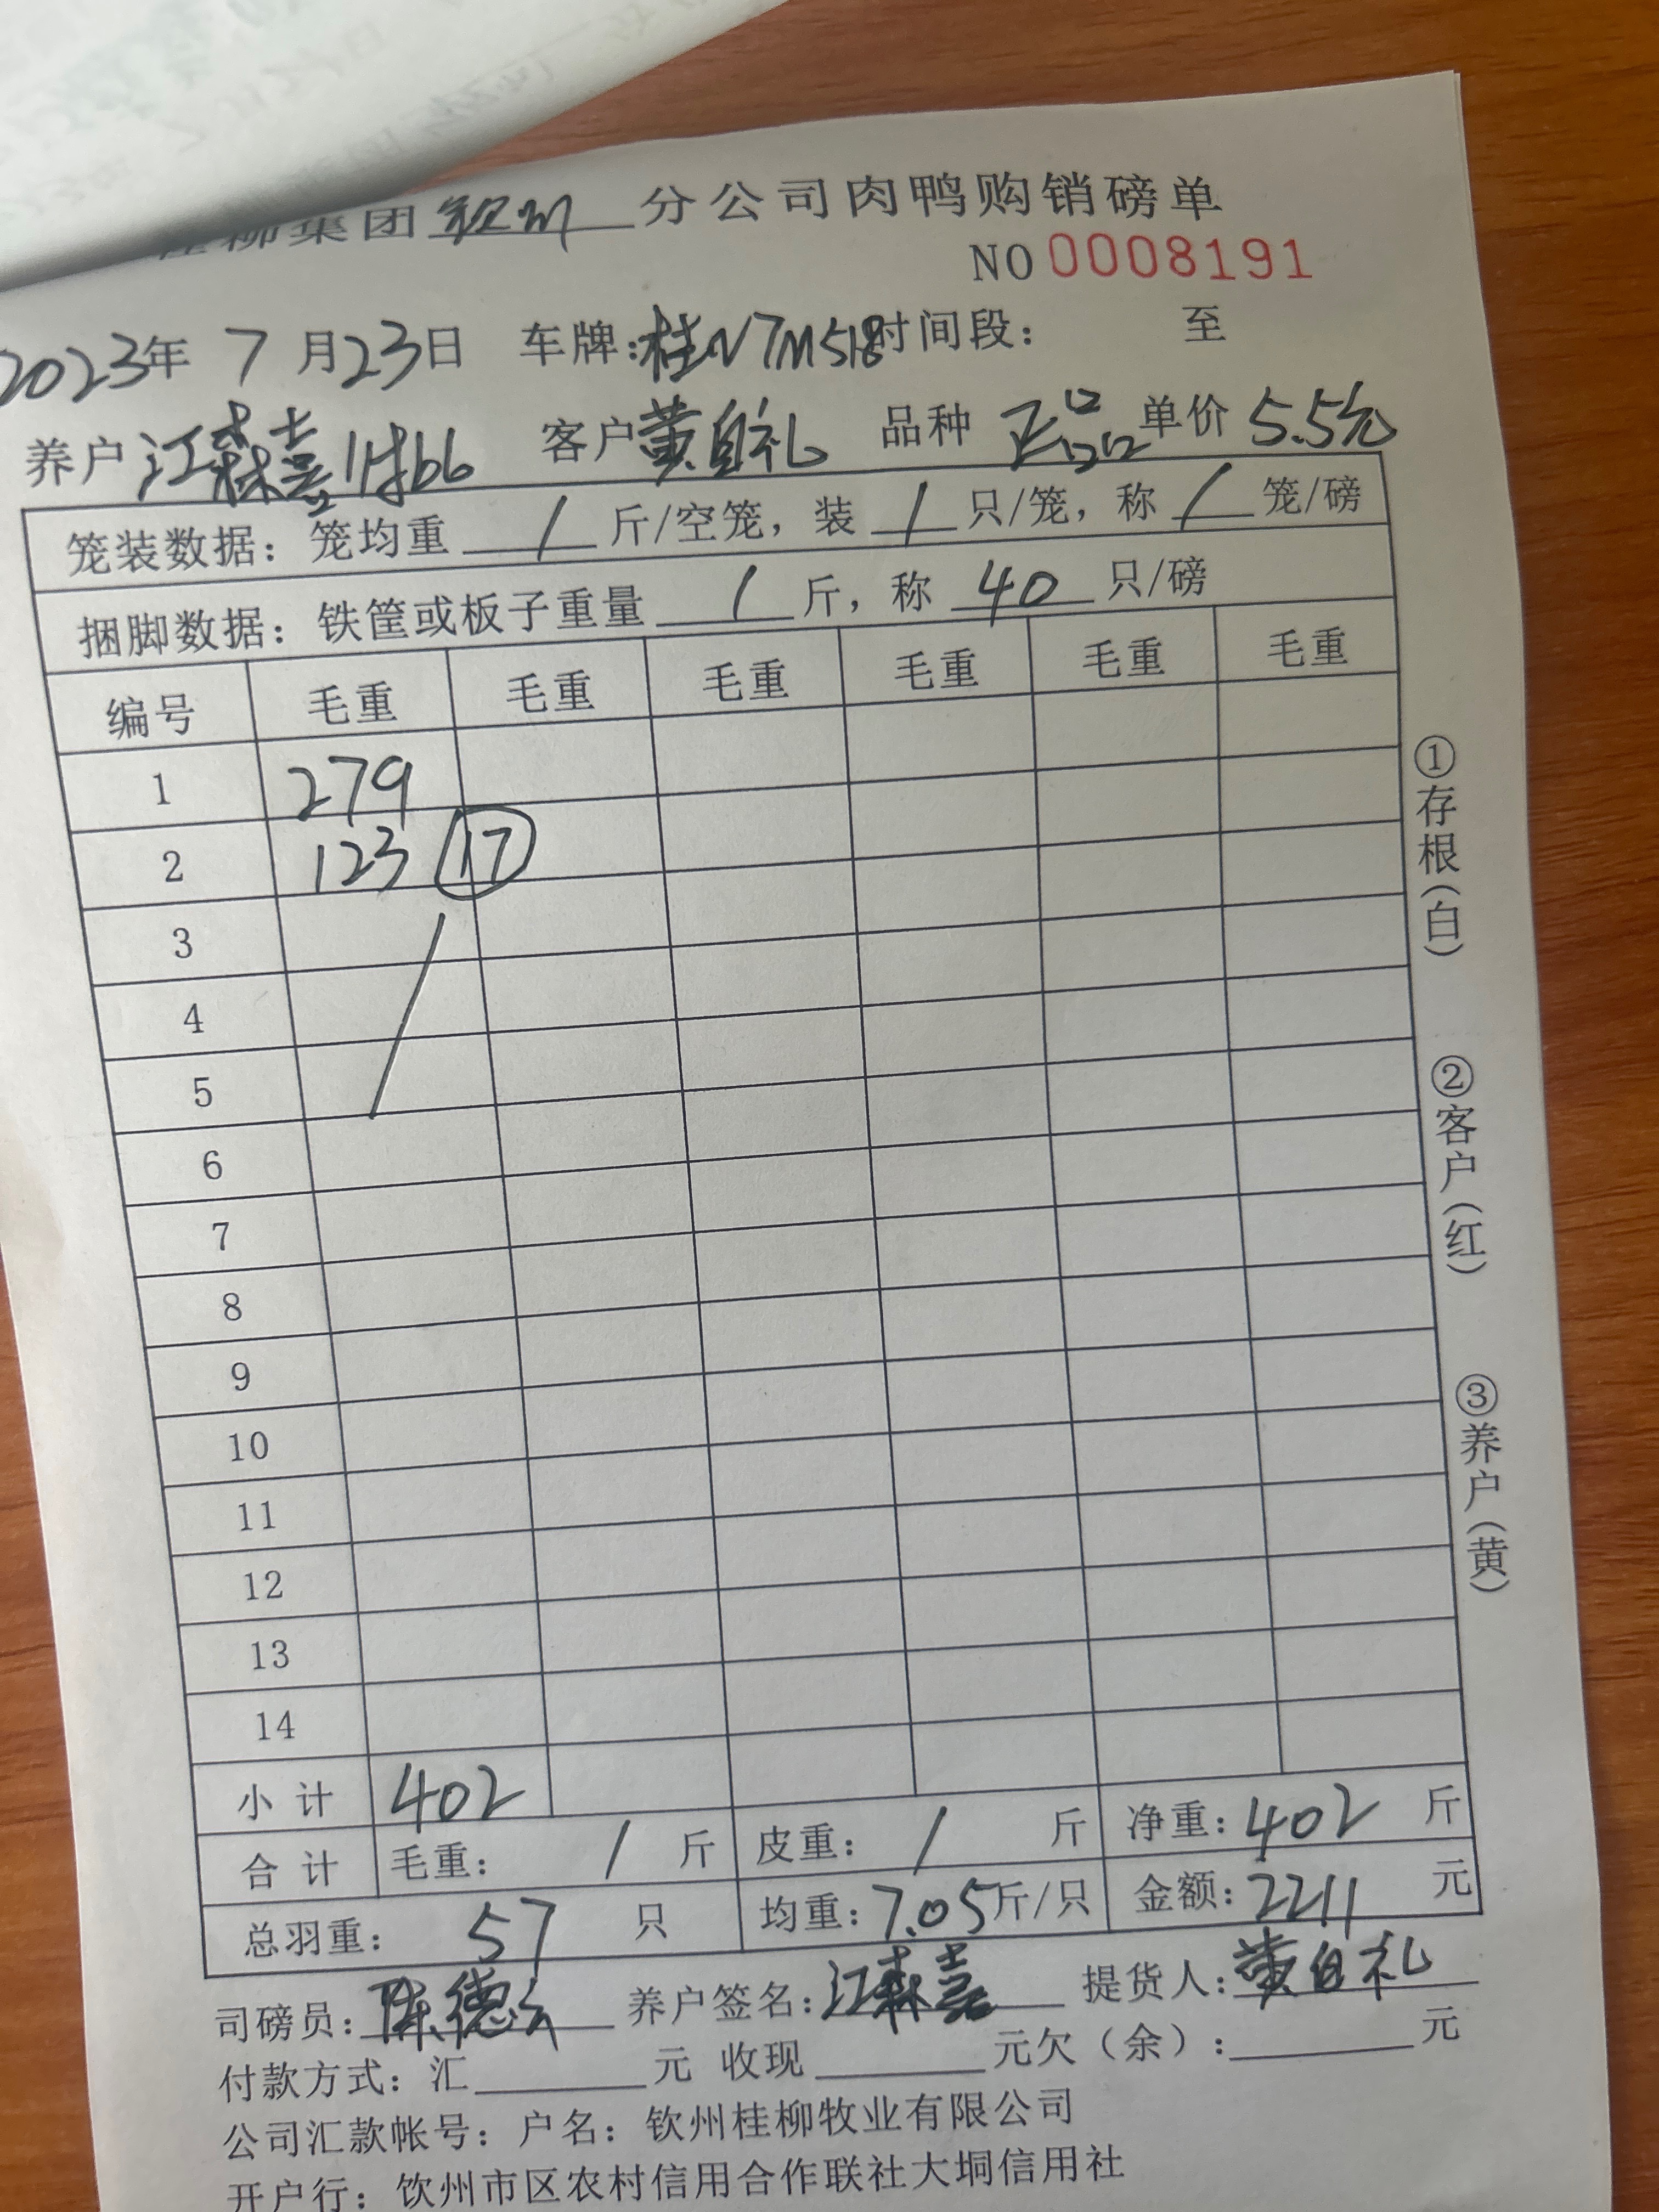 桂柳集团钦州分公司肉鸭购销磅单
NO 0008191
2023年 7 月23日 车牌:桂N7M518时间段: 至
养户 江森嘉1付66 客户 黄自礼 品种 正品 单价 5.5元
笼装数据: 笼均重 / 斤/空笼, 装 / 只/笼, 称 / 笼/磅
捆脚数据: 铁筐或板子重量 / 斤, 称 40 只/磅
编号 毛重 毛重 毛重 毛重 毛重 毛重
1 279
2 123 17
3
4
5
6
7
8
9
10
11
12
13
14
小 计 402
合 计 毛重: / 斤 皮重: / 斤 净重: 402 斤
总羽重: 57 只 均重: 7.05斤/只 金额: 2211 元
司磅员: 陈德 养户签名: 江森嘉 提货人: 黄自礼
付款方式: 汇 元 收现 元欠(余): 元
公司汇款帐号: 户名: 钦州桂柳牧业有限公司
开户行: 饮州市区农村信用合作联社大垌信用社
①存根(白)
②客户(红)
③养户(黄)